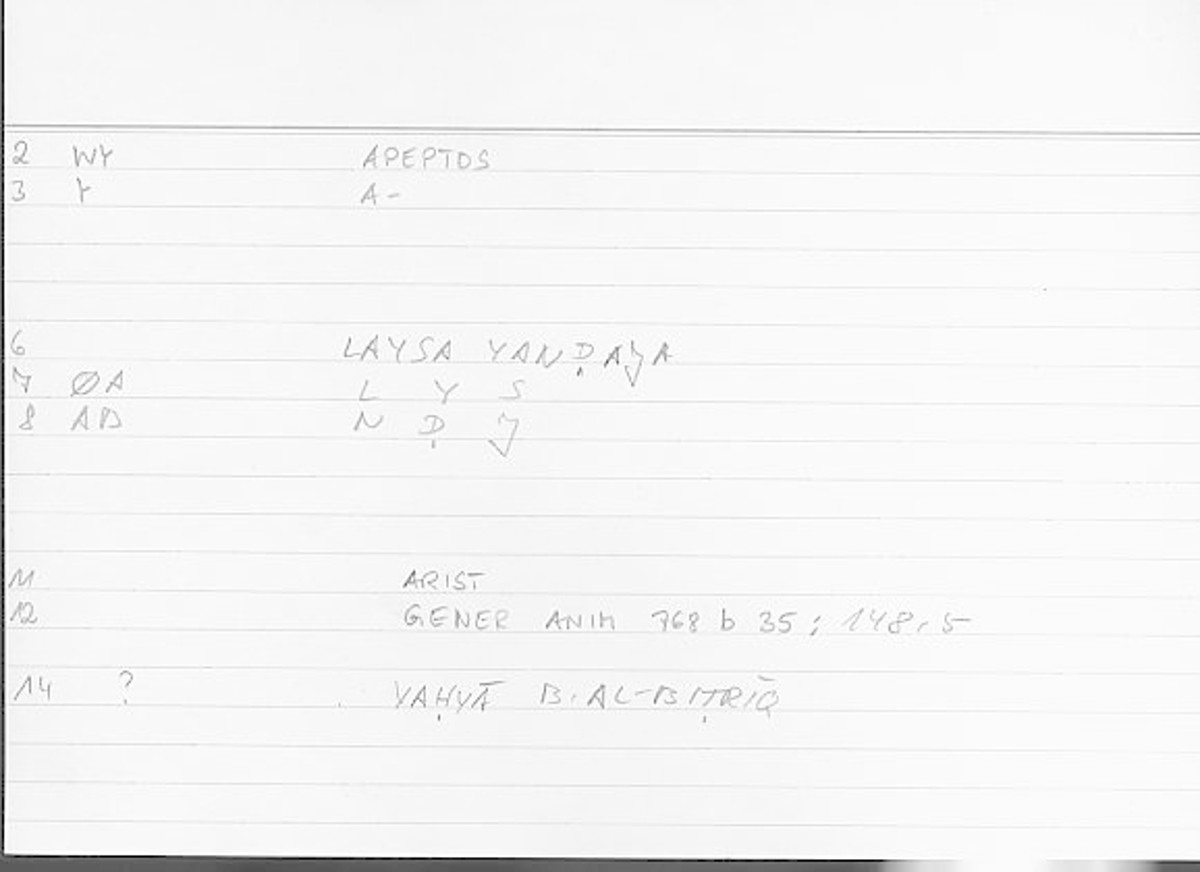 2 WY APEPTOS
3 Y A-
6 LAYSA YANḌAJA
7 ØA L Y S
8 AB N Ḍ J
11 ARIST
12 GENER ANIM 768 b 35; 148,5
14 ? YAḤYĀ B. AL-BIṬRĪQ